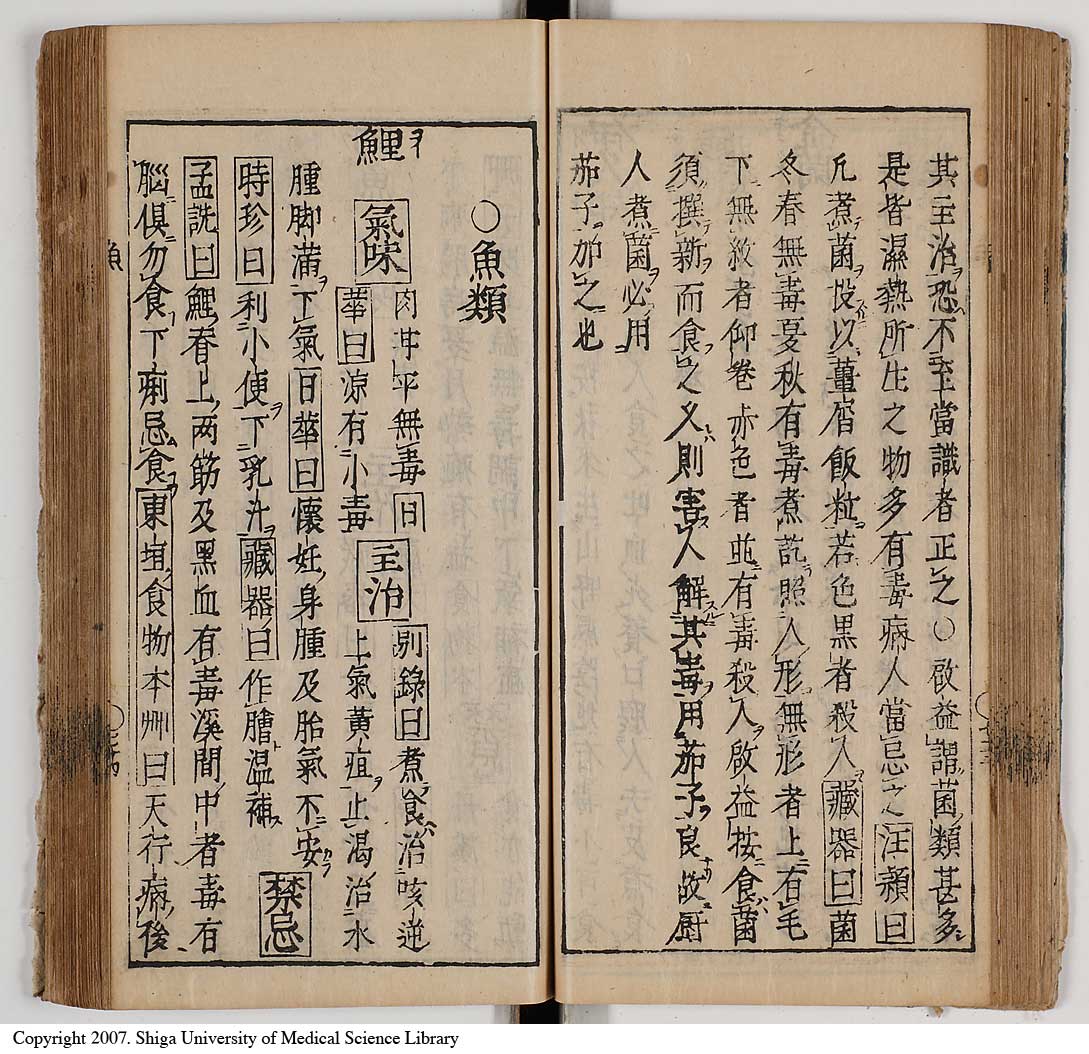 其主治恐不至當識者正之〇啟益謂菌類甚多
是皆濕熱所生之物多有毒病人當忌之汪穎曰
凡煮菌投以薑屑飯粒若色黒者殺人藏器曰菌
冬春無毒夏秋有毒煮訖照人形無形者上有毛
下無紋者仰卷赤色者並有毒殺人啟益按食菌
須撰新而食之乂則害人解其毒用茄子良故厨
人煮菌必用
茄子加之也
〇魚類
鯉ヲ
氣味 肉甘平無毒日
華曰凉有小毒 主治 別錄曰煮食治咳逆
上氣黄疸止渴治水
腫脚滿下氣日華曰懷妊身腫及胎氣不安
時珍曰利小便下乳汁藏器曰作膾温補 禁忌
孟詵曰鯉春上兩筋及黑血有毒溪間中者毒有
腦俱勿食下痢忌食東垣食物本艸曰天行病後
魚
Copyright 2007. Shiga University of Medical Science Library